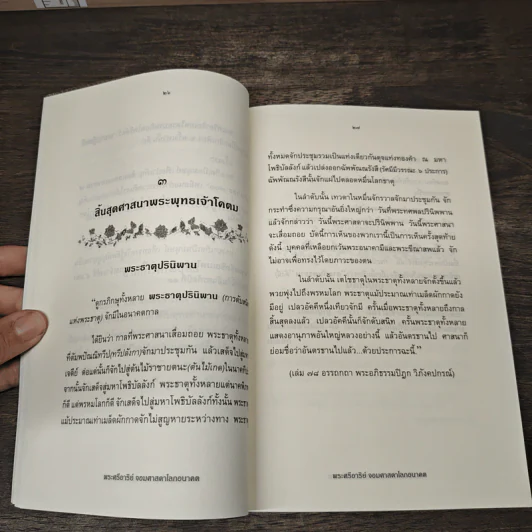 ๒๖
๓
สิ้นสุดศาสนาพระพุทธเจ้าโคตม
พระธาตุปรินิพาน
"ดูกรภิกษุทั้งหลาย พระธาตุปรินิพาน (การดับ
แห่งพระธาตุ) จักมีในอนาคตกาล
ได้ยินว่า กาลที่พระศาสนาเสื่อมถอย พระธาตุทั้ง
ที่ตัมพปัณณิทวีป(ทวีปลังกา)จักมาประชุมกัน แล้วเสด็จไปสู่ม
เจดีย์ ต่อแต่นั้นก็จักไปสู่ต้นไม้ราชายตนะ(ต้นไม้เกต)ในนาคทีป
จากนั้นจักเสด็จสู่มหาโพธิบัลลังก์ พระธาตุทั้งหลายแต่นาคพิภ
ก็ดี แต่พรหมโลกก็ดี จักเสด็จไปสู่มหาโพธิบัลลังก์ทั้งนั้น พระธา
แม้ประมาณเท่าเมล็ดผักกาดจักไม่สูญหายระหว่างทาง พระธา
พระศรีอาริย์ จอมศาสดาโลกอนาคต
๒๗
ทั้งหมดจักประชุมรวมเป็นแท่งเดียวกันดุจแท่งทองคำ ณ มหา
โพธิบัลลังก์ แล้วเปล่งออกฉัพพัณณรังสี (รัศมีมีวรรณะ ๖ ประการ)
ฉัพพัณณรังสีนั้นจักแผ่ไปตลอดหมื่นโลกธาตุ
ในลำดับนั้น เทวดาในหมื่นจักรวาลจักมาประชุมกัน จัก
กระทำซึ่งความกรุณาอันยิ่งใหญ่กว่า วันที่พระทศพลปรินิพพาน
แล้วจักกล่าวว่า วันนี้พระศาสดาจะปรินิพพาน วันนี้พระศาสนา
จะเสื่อมถอย บัดนี้การเห็นของพวกเรานี้เป็นการเห็นครั้งสุดท้าย
ดังนี้ บุคคลที่เหลือยกเว้นพระอนาคามีและพระขีณาสพแล้ว จัก
ไม่อาจเพื่อทรงไว้โดยภาวะของตน
ในลำดับนั้น เตโชธาตุในพระธาตุทั้งหลายจักตั้งขึ้นแล้ว
พวยพุ่งไปถึงพรหมโลก พระธาตุแม้ประมาณเท่าเมล็ดผักกาดยัง
มีอยู่ เปลวอัคคีหนึ่งก็จักยังมีอยู่ ครั้นเมื่อพระธาตุทั้งหลายถึงกาล
สิ้นสุดลงแล้ว เปลวอัคคีนั้นก็จักดับสนิท ครั้นพระธาตุทั้งหลาย
แสดงอานุภาพอันใหญ่หลวงอย่างนี้ แล้วอันตรธานไป ศาสนาก็
ย่อมชื่อว่าอันตรธานไปแล้ว...ด้วยประการฉะนี้."
(เล่ม ๗๘ อรรถกถา พระอภิธรรมปิฎก วิภังคปกรณ์)
พระศรีอาริย์ จอมศาสดาโลกอนาคต